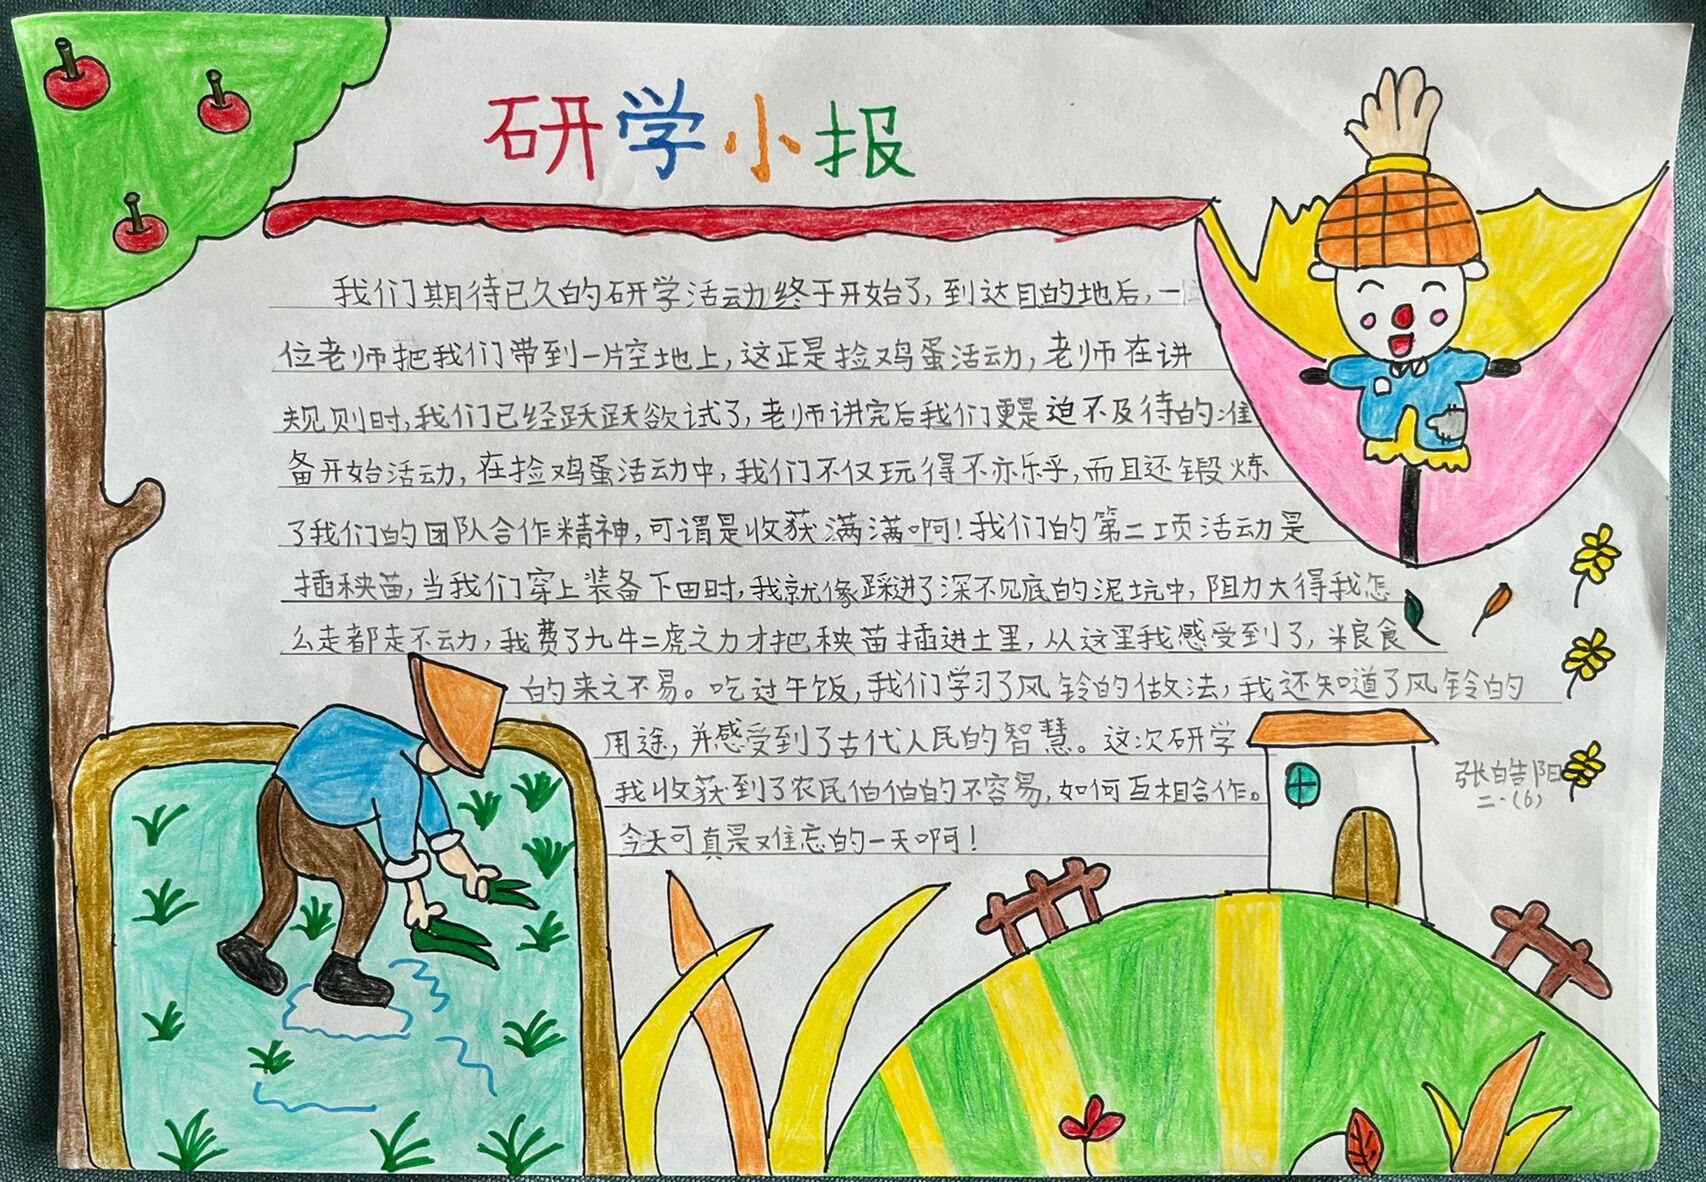 研学小报
我们期待已久的研学活动终于开始了，到达目的地后，一
位老师把我们带到一片空地上，这正是捡鸡蛋活动，老师在讲
规则时，我们已经跃跃欲试了，老师讲完后我们更是迫不及待的准
备开始活动，在捡鸡蛋活动中，我们不仅玩得不亦乐乎，而且还锻炼
了我们的团队合作精神，可谓是收获满满啊！我们的第二项活动是
插秧苗，当我们穿上装备下田时，我就像踩进了深不见底的泥坑中，阻力大得我怎
么走都走不动，我费了九牛二虎之力才把秧苗插进土里，从这里我感受到了，粮食
的来之不易。吃过午饭，我们学习了风铃的做法，我还知道了风铃的
用途，并感受到了古代人民的智慧。这次研学
我收获到了农民伯伯的不容易，如何互相合作。
今天可真是难忘的一天啊！
张皓阳
二·(6)